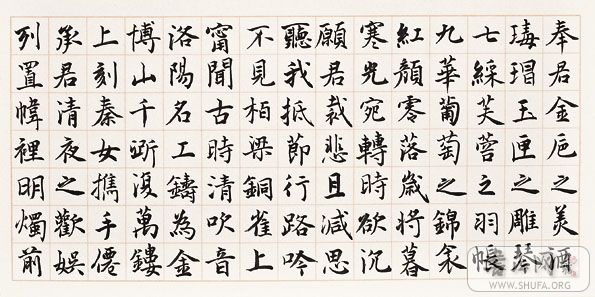 奉君金巵之美酒
瑇瑁玉匣之雕琴
七綵芙蓉之羽帳
九華葡萄之錦衾
紅顏零落歲將暮
寒光宛轉時欲沉
願君裁悲且減思
聽我抵節行路吟
不見柏梁銅雀上
甯聞古時清吹音
洛陽名工鑄為金
博山千斲復萬鏤
上刻秦女攜手僊
承君清夜之歡娛
列置幃裡明燭前
WWW.SHUFA.ORG